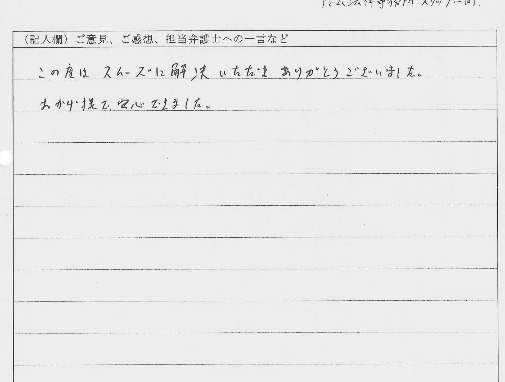 アトム法律事務所 スタッフ一同
(記入欄) ご意見、ご感想、担当弁護士への一言など
この度は スムーズに解決いただき ありがとうございました。
おかげ様で、安心できました。